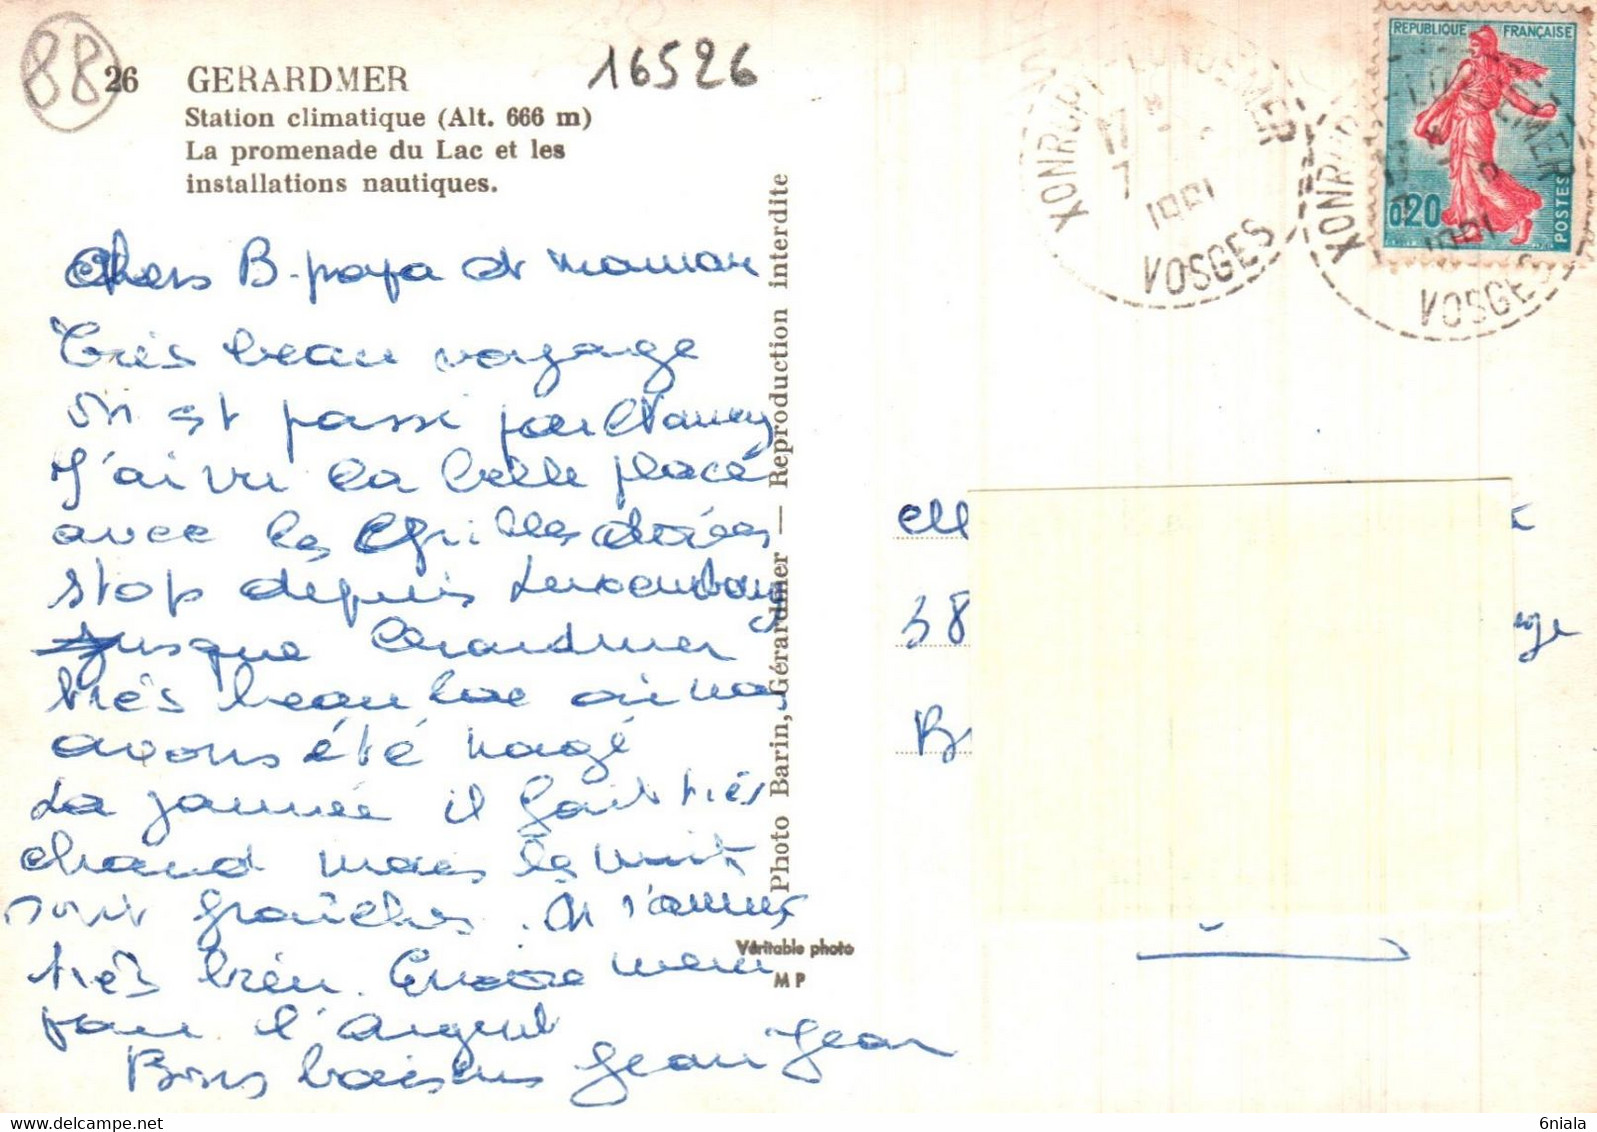 88
26 GERARDMER
Station climatique (Alt. 666 m)
La promenade du Lac et les
installations nautiques.
16526
Chers B-papa et maman
Très beau voyage
on est passé par Nancy
J'ai vu la belle place
avec les Grilles dorées
stop depuis Luxembourg
jusque Gerardmer
très beau lac où nous
avons été nagé
La journée il fait très
chaud mais les nuits
sont fraîches. On s'amuse
très bien. Encore merci
pour l'argent
Bons baisers Jean Jean
Photo Barin, Gérardmer — Reproduction interdite
Véritable photo
M P
XONRUPT-LONGEMER
17
7
1961
VOSGES
XONRUPT-LONGEMER
1961
VOSGES
REPUBLIQUE FRANÇAISE
0,20
POSTES
38
6niala